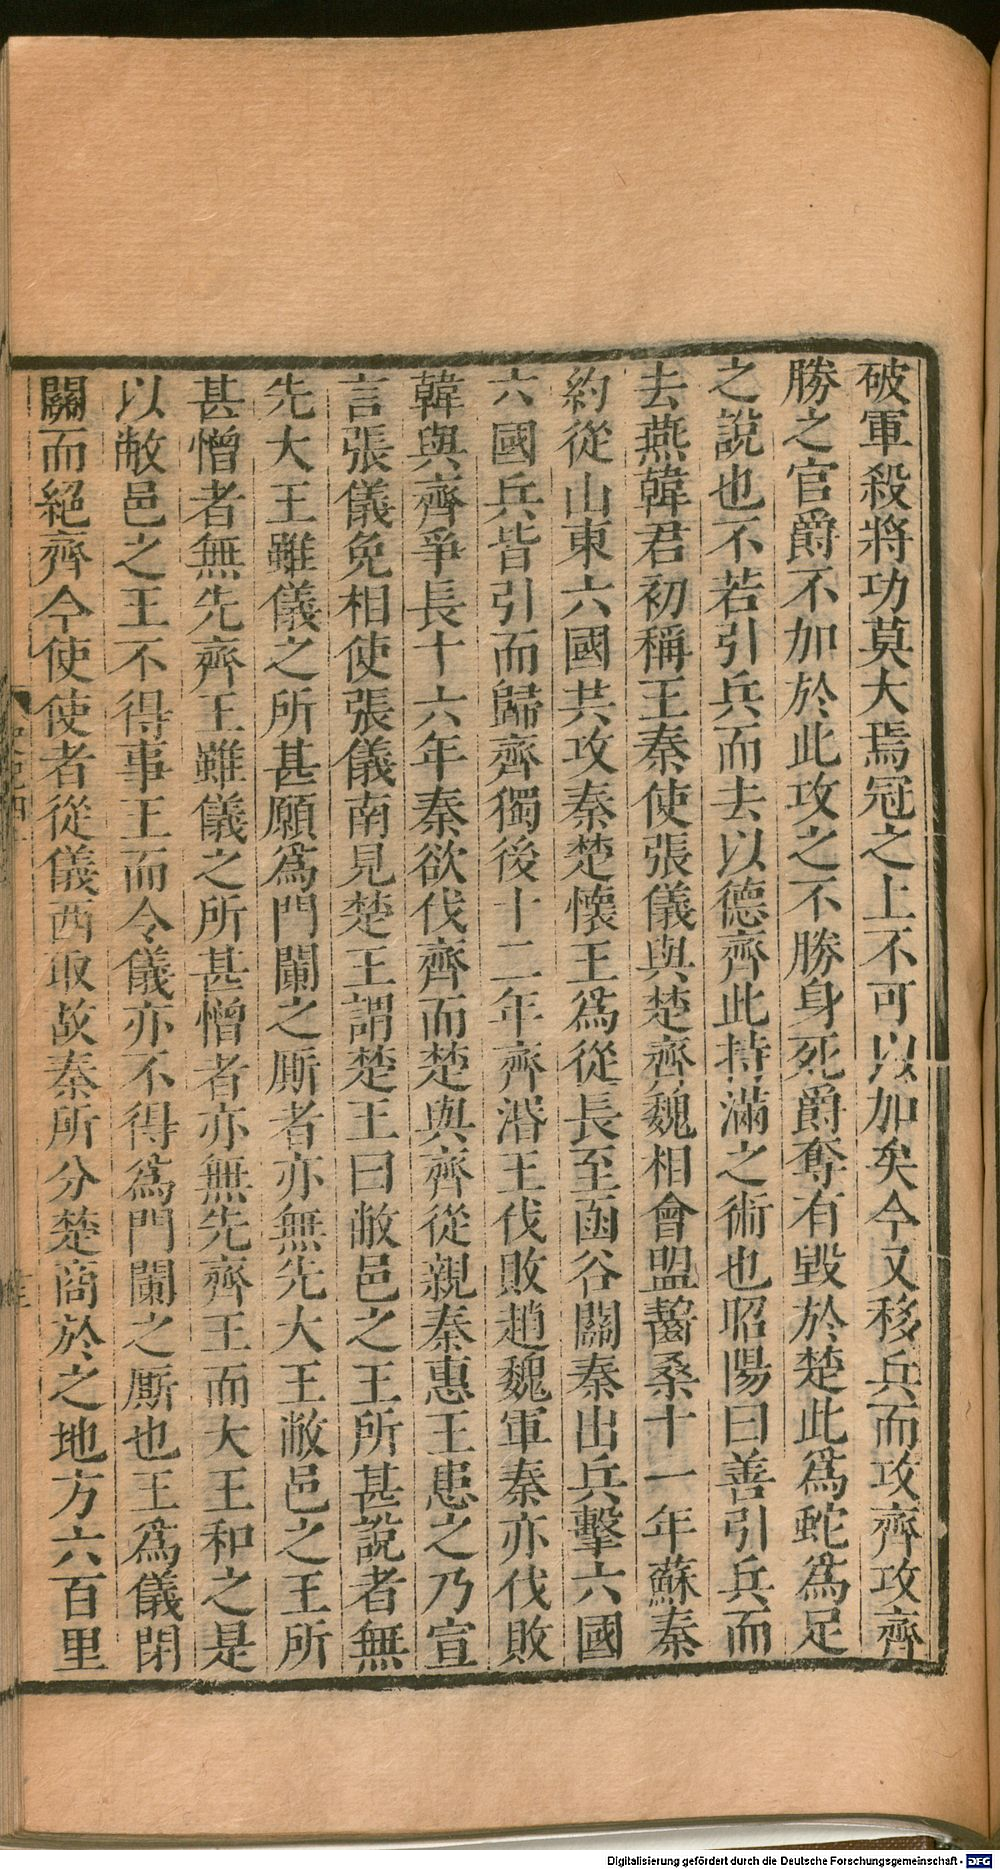 破軍殺將功莫大焉冠之上不可以加矣今又移兵而攻齊攻齊
勝之官爵不加於此攻之不勝身死爵奪有毀於楚此為蛇為足
之說也不若引兵而去以德齊此持滿之術也昭陽曰善引兵而
去燕韓君初稱王秦使張儀與楚齊魏相會盟齧桑十一年蘇秦
約從山東六國共攻秦楚懷王為從長至函谷關秦出兵擊六國
六國兵皆引而歸齊獨後十二年齊湣王伐敗趙魏軍秦亦伐敗
韓與齊爭長十六年秦欲伐齊而楚與齊從親秦惠王患之乃宣
言張儀免相使張儀南見楚王謂楚王曰敝邑之王所甚說者無
先大王雖儀之所甚願為門闌之廝者亦無先大王敝邑之王所
甚憎者無先齊王雖儀之所甚憎者亦無先齊王而大王和之是
以敝邑之王不得事王而令儀亦不得為門闌之廝也王為儀閉
關而絕齊今使使者從儀西取故秦所分楚商於之地方六百里
Digitalisierung gefördert durch die Deutsche Forschungsgemeinschaft - DFG